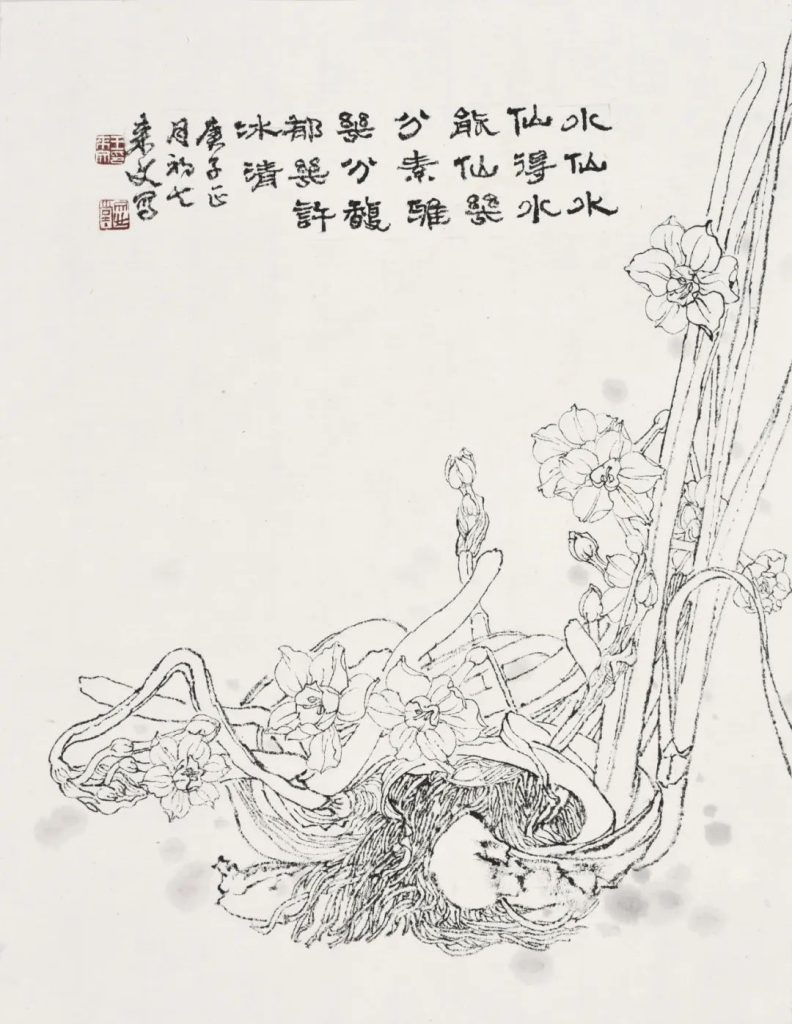 水仙水
仙得水
能仙幾
分素雅
幾分馥
郁幾許
冰清
庚子正
月初七
文寫